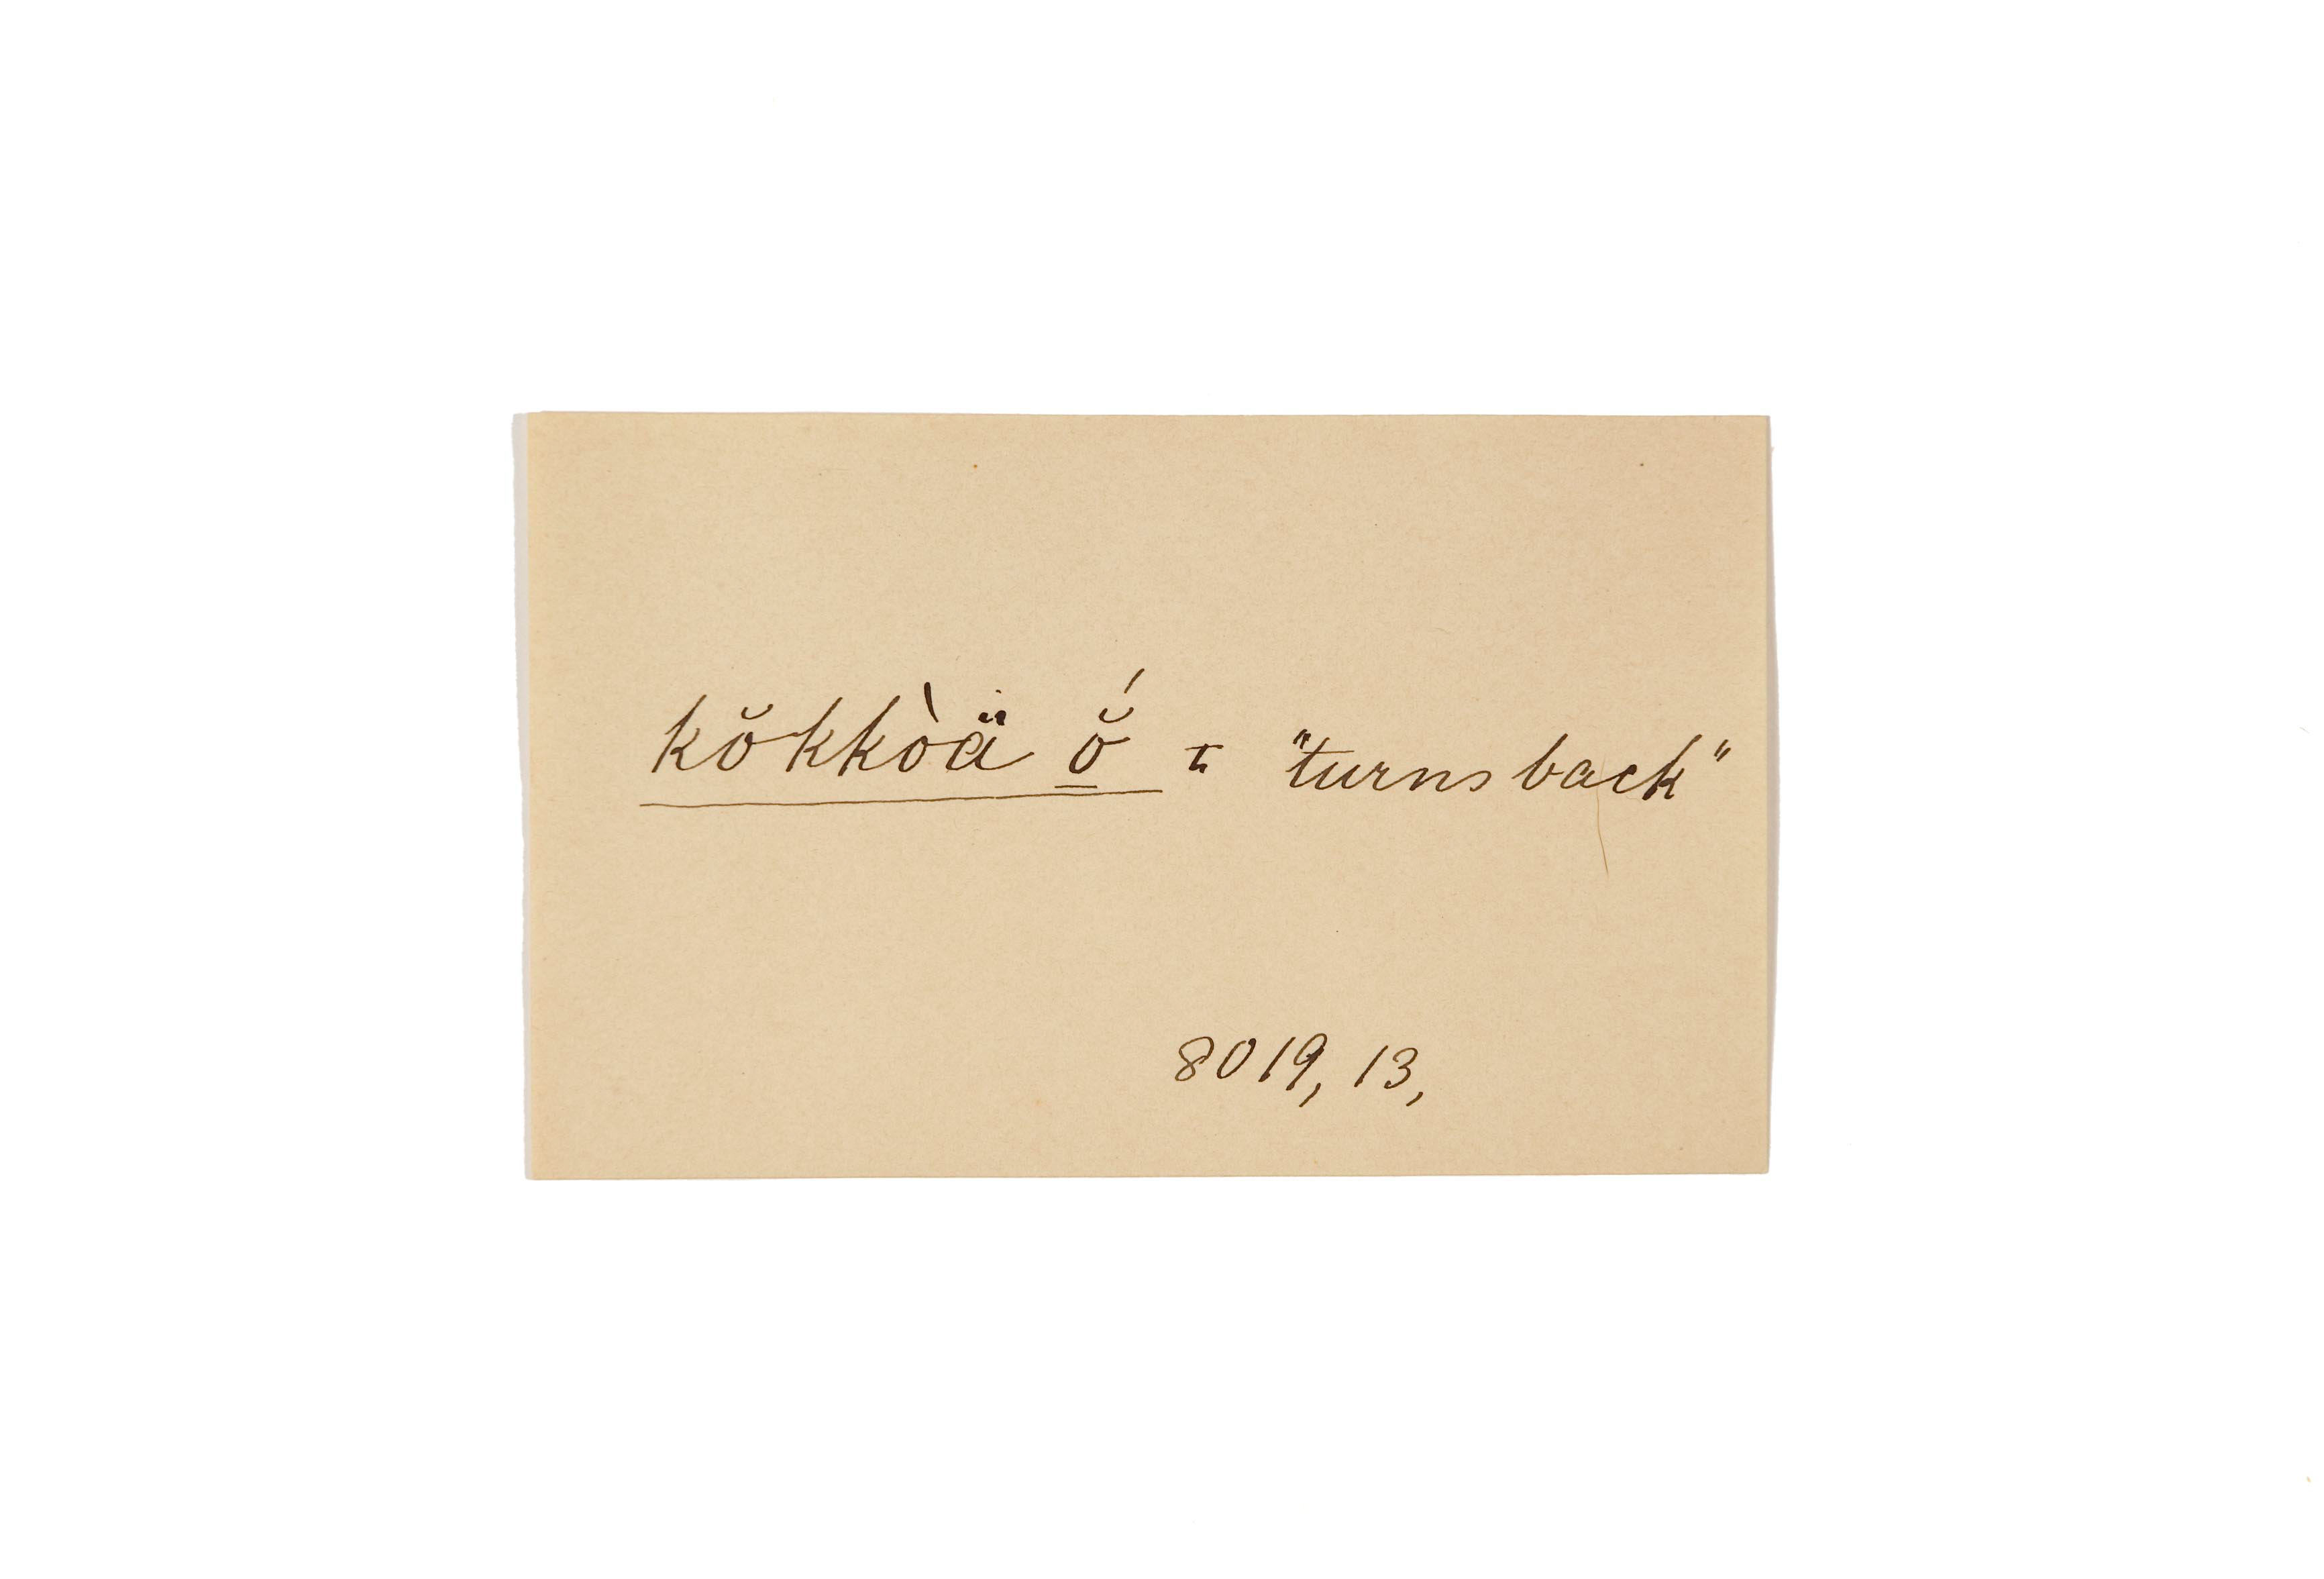 kŏkkòä ŏ̱́ = "turns back"
8019, 13,